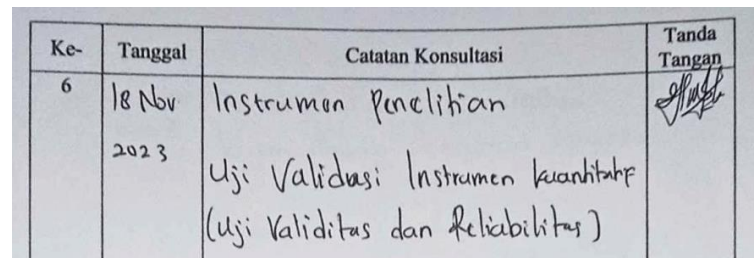 Ke- Tanggal Catatan Konsultasi Tanda Tangan
6 18 Nov 2023 Instrumen Penelitian
Uji Validasi Instrumen kuantitatif
(Uji Validitas dan Reliabilitas)